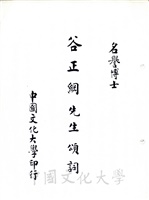 名譽博士
谷正綱先生頌詞
中國文化大學印行
中國文化大學